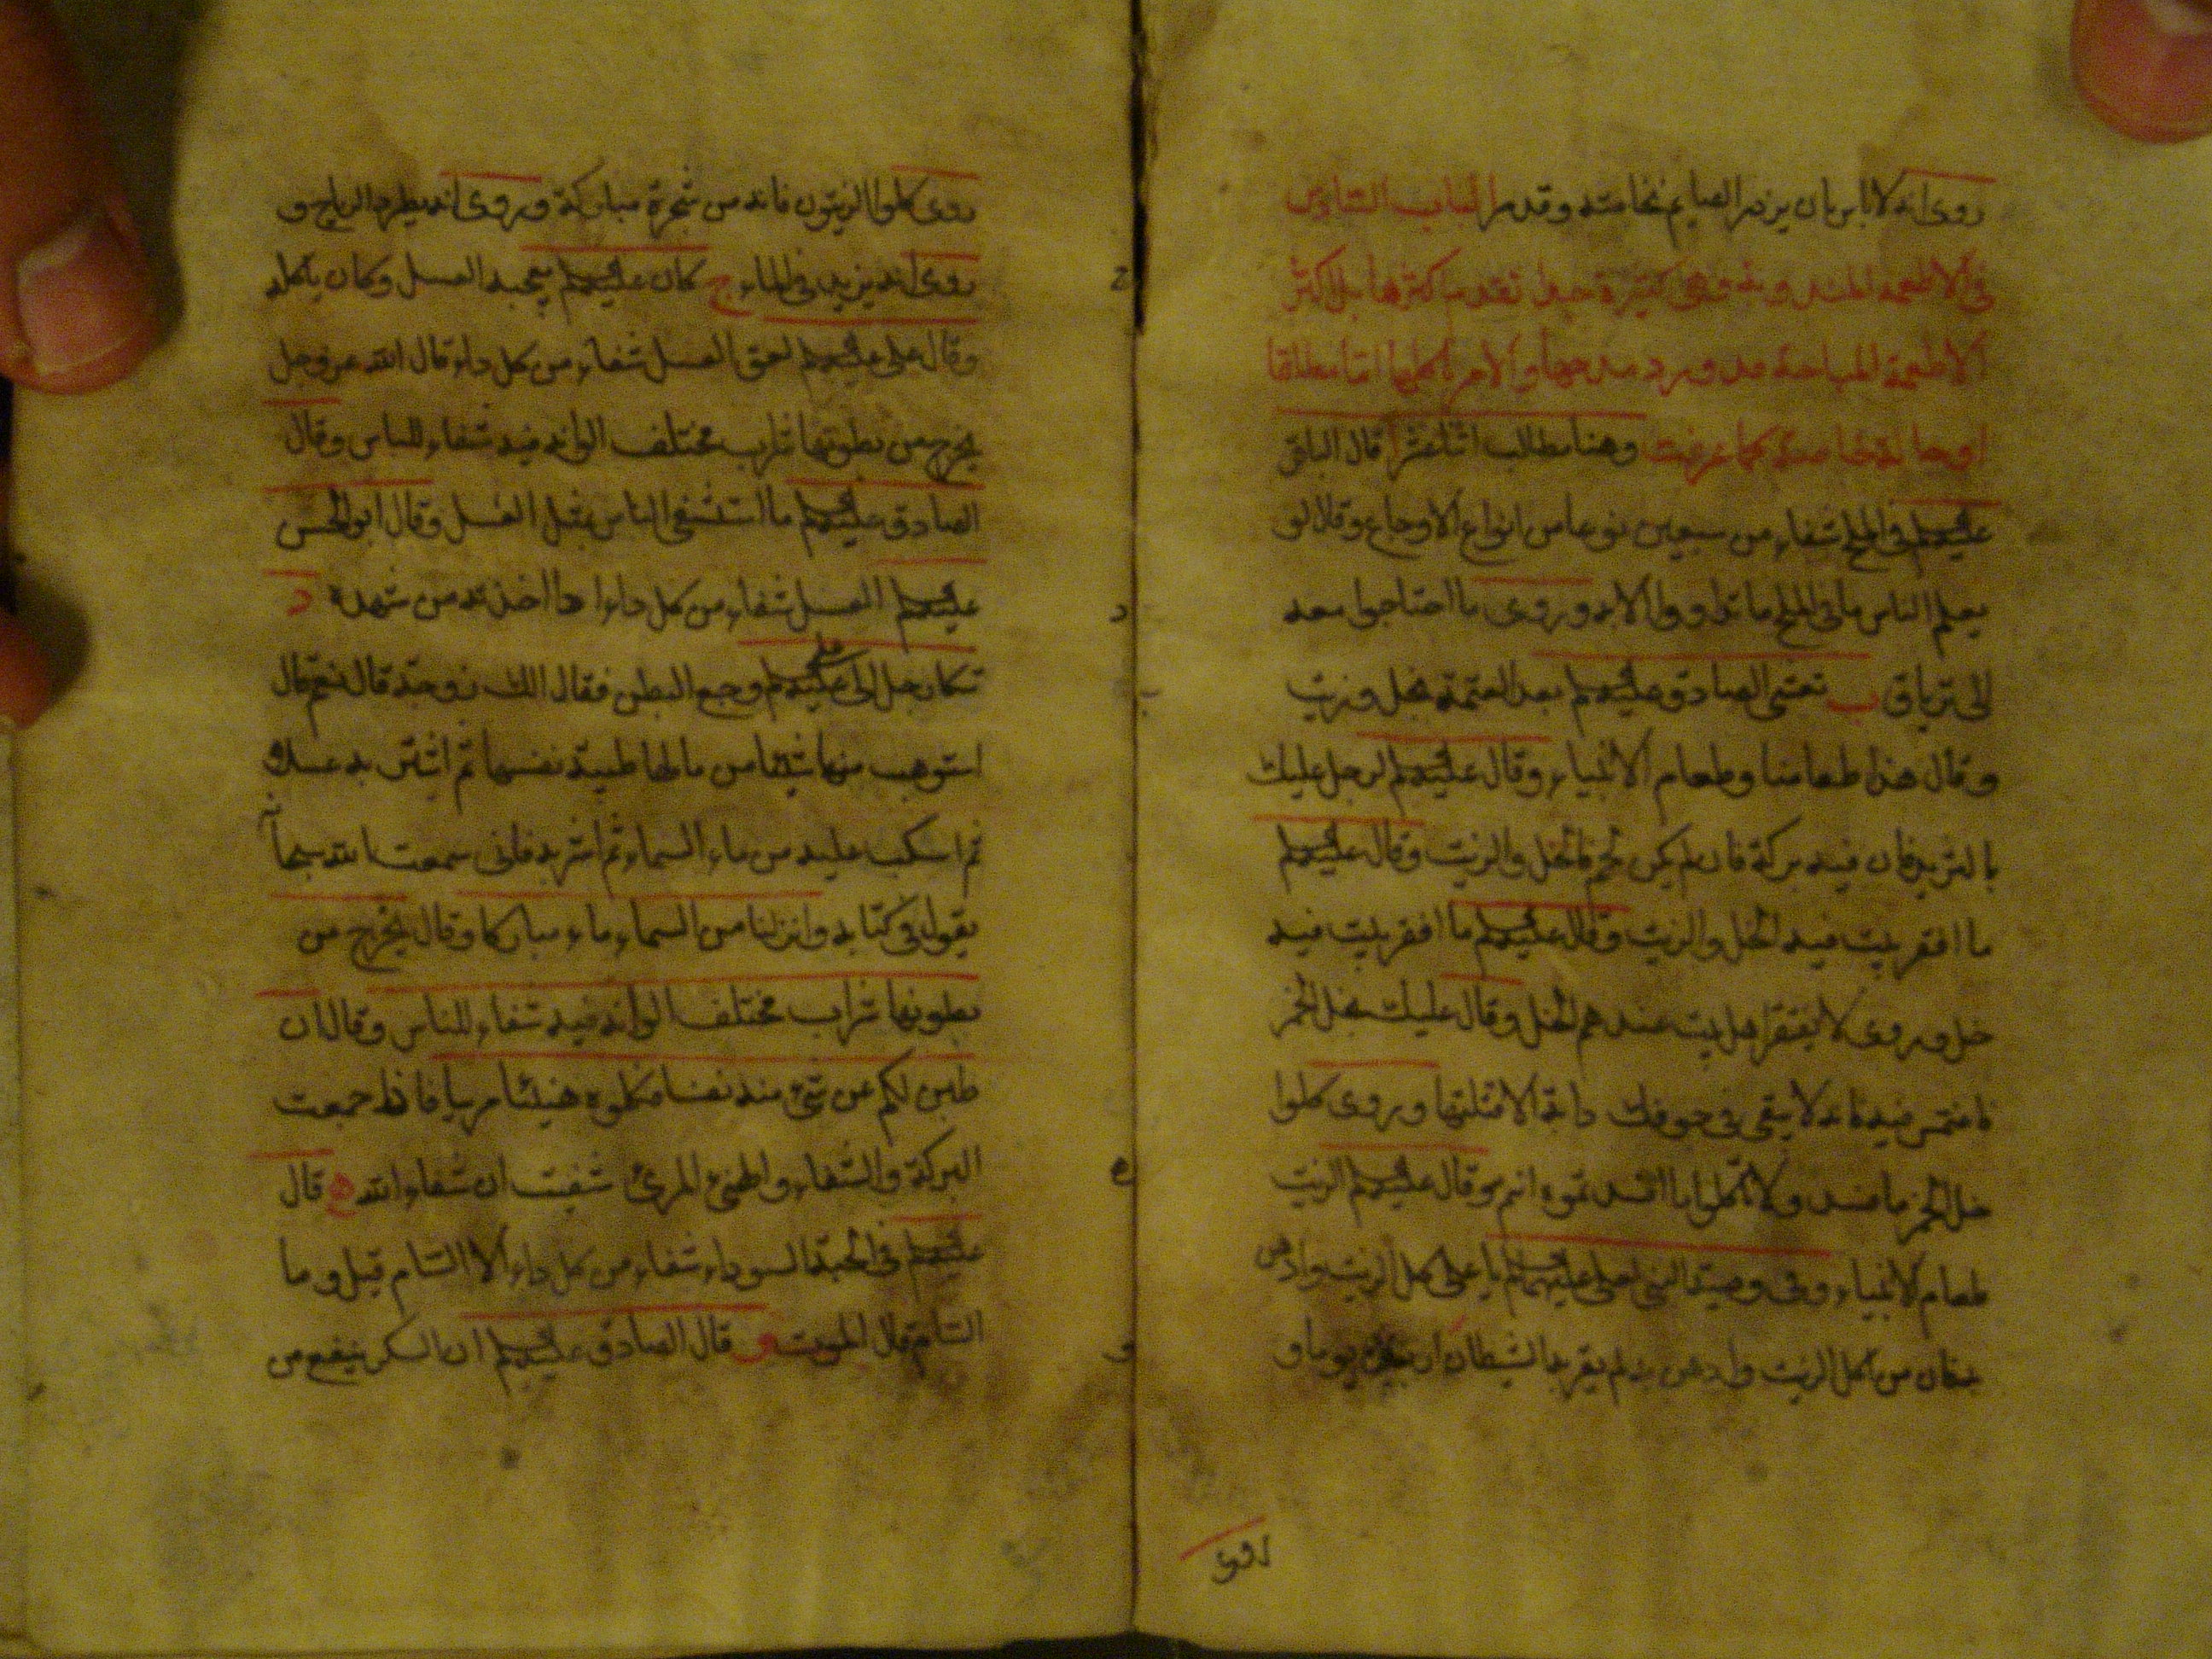 روى انه لا باس بان يزدرد الصايم نخامته وقد مر الباب السادس
في الاطعمة المندوبة وهي كثيرة جدا تقدم اكثرها بل اكثر
الاطعمة المباحة قد ورد مدحها والامر باكلها اما مطلقا
او حالة خاصة كما عرفت وهنا مطالب اثنا عشر ا قال الباقر
عليه السلم في الملح شفاء من سبعين نوعا من انواع الاوجاع وقال لو
يعلم الناس ما في الملح ما تداووا الا به وروى ما احتاجوا معه
الى ترياق ب تعشى الصادق عليه السلم بعد العتمة بخل وزيت
وقال هذا طعامنا وطعام الانبياء وقال عليه السلم لرجل عليك
بالثريد فان فيه بركة فان لم يكن لحم فالخل والزيت وقال عليه السلم
ما افقر بيت فيه الخل والزيت وقال عليه السلم ما افقر بيت فيه
خل وروى لا يفتقر اهل بيت عندهم الخل وقال عليك بخل الخمر
فاغتمس فيه فانه لا يبقى في جوفك دابة الا قتلتها وروى كلوا
خل الخمر ما فسد ولا تاكلوا ما افسدتموه انتم وقال عليه السلم الزيت
طعام الانبياء وفي وصية النبي لعلي عليهما السلم يا علي كل الزيت وادهن
به فان من اكل الزيت وادهن به لم يقربه الشيطان اربعين يوما و
روى
روى كلوا الزيتون فانه من شجرة مباركة وروى انه يطرد الرياح و
روى انه يزيد في الماء ج كان عليه السلم يعجبه العسل وكان ياكله
وقال علي عليه السلم لعق العسل شفاء من كل داء قال الله عز وجل
يخرج من بطونها شراب مختلف الوانه فيه شفاء للناس وقال
الصادق عليه السلم ما استشفى الناس بمثل العسل وقال ابو الحسن
عليه السلم العسل شفاء من كل داء اذا اخذته من شهده د
شكا رجل الى علي عليه السلم وجع البطن فقال الك زوجة قال نعم قال
استوهب منها شيئا من مالها طيبة نفسها ثم اشتر به عسلا و
ثم اسكب عليه من ماء السماء ثم اشربه فاني سمعت الله سبحانه
يقول في كتابه وانزلنا من السماء ماء مباركا وقال يخرج من
بطونها شراب مختلف الوانه فيه شفاء للناس وقال ان
طبن لكم عن شئ منه نفسا فكلوه هنيئا مريا فاذا جمعت
البركة والشفاء والهنئ المرئ شفيت ان شاء الله ه قال
عليه السلم في الحبة السوداء شفاء من كل داء الا السام قيل وما
السام قال الموت و قال الصادق عليه السلم ان السكر ينفع من
ج
د
ه
و